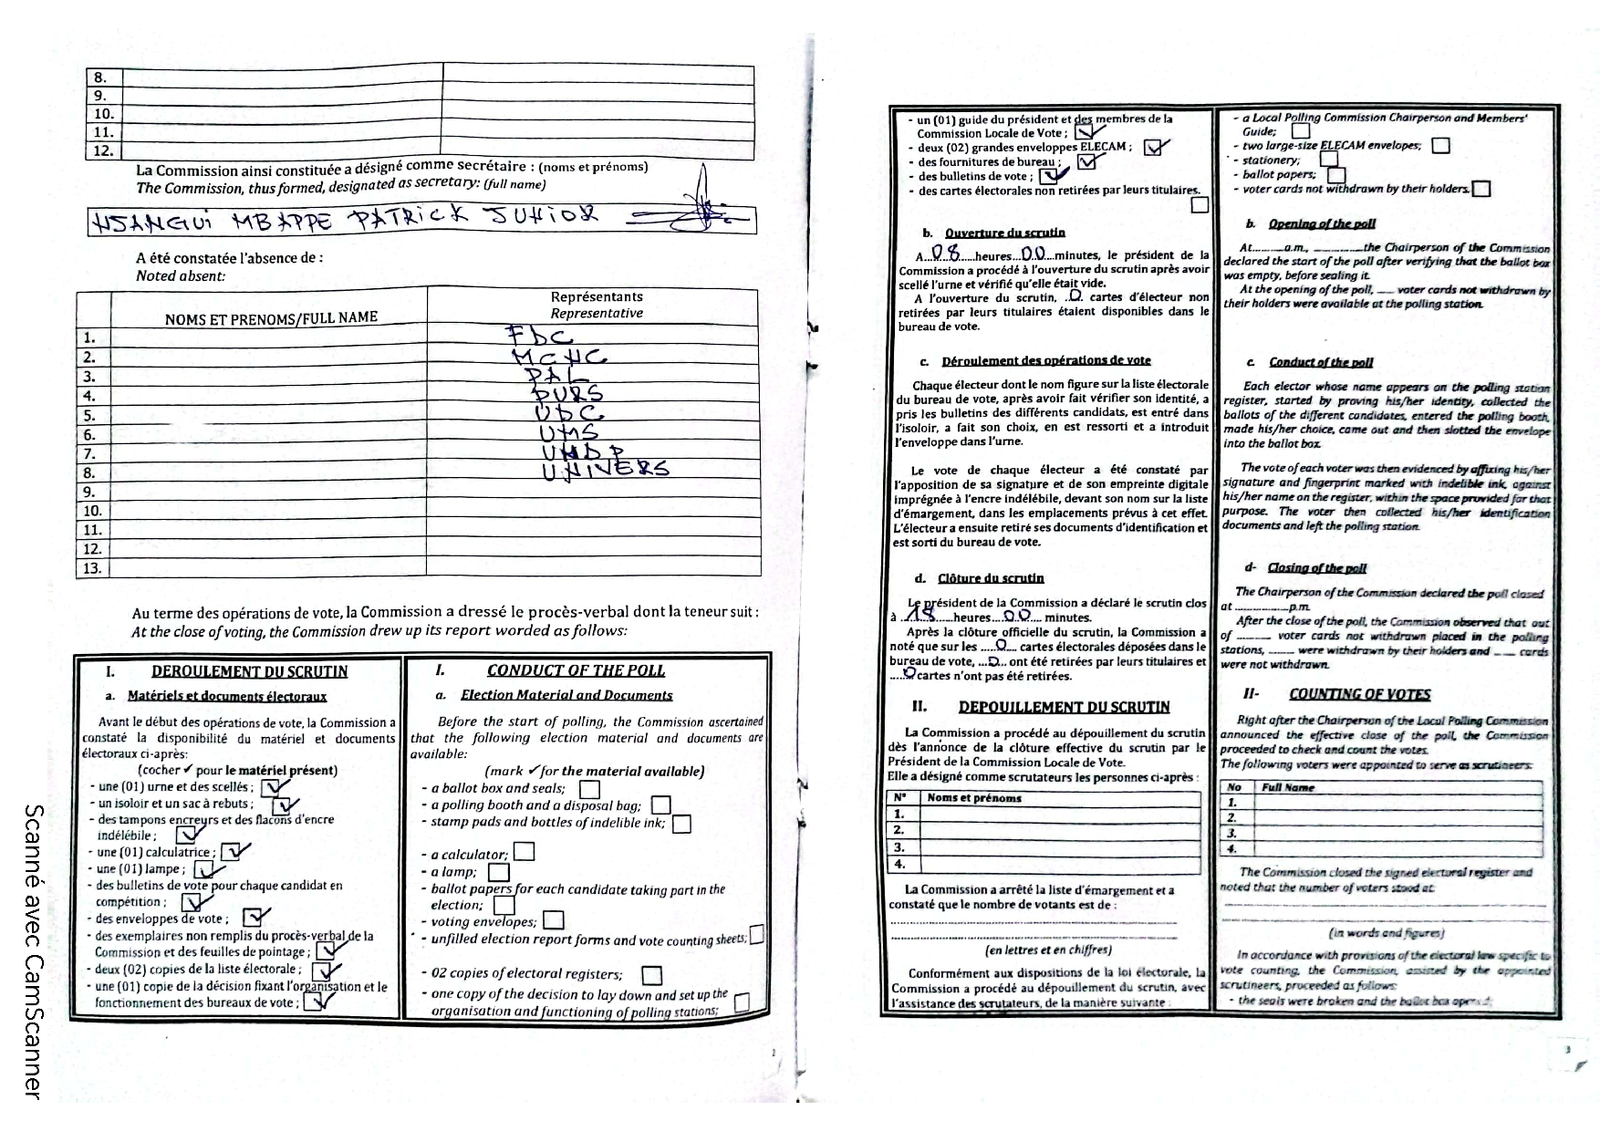 8.
9.
10.
11.
12.
La Commission ainsi constituée a désigné comme secrétaire : (noms et prénoms)
The Commission, thus formed, designated as secretary: (full name)
NSANGUi MBAPPE PATRiCK JUNiOR
A été constatée l'absence de :
Noted absent:
NOMS ET PRENOMS/FULL NAME
Représentants
Representative
1. FDC
2. MCNC
3. PAL
4. PURS
5. UDC
6. UMS
7. UNDP
8. UNIVERS
9.
10.
11.
12.
13.
Au terme des opérations de vote, la Commission a dressé le procès-verbal dont la teneur suit :
At the close of voting, the Commission drew up its report worded as follows:
I. DEROULEMENT DU SCRUTIN
a. Matériels et documents électoraux
Avant le début des opérations de vote, la Commission a
constaté la disponibilité du matériel et documents
électoraux ci-après:
(cocher ✓ pour le matériel présent)
- une (01) urne et des scellés ;
- un isoloir et un sac à rebuts ;
- des tampons encreurs et des flacons d'encre
indélébile ;
- une (01) calculatrice ;
- une (01) lampe ;
- des bulletins de vote pour chaque candidat en
compétition ;
- des enveloppes de vote ;
- des exemplaires non remplis du procès-verbal de la
Commission et des feuilles de pointage ;
- deux (02) copies de la liste électorale ;
- une (01) copie de la décision fixant l'organisation et le
fonctionnement des bureaux de vote ;
I. CONDUCT OF THE POLL
a. Election Material and Documents
Before the start of polling, the Commission ascertained
that the following election material and documents are
available:
(mark ✓ for the material available)
- a ballot box and seals;
- a polling booth and a disposal bag;
- stamp pads and bottles of indelible ink;
- a calculator;
- a lamp;
- ballot papers for each candidate taking part in the
election;
- voting envelopes;
- unfilled election report forms and vote counting sheets;
- 02 copies of electoral registers;
- one copy of the decision to lay down and set up the
organisation and functioning of polling stations;
2
- un (01) guide du président et des membres de la
Commission Locale de Vote ;
- deux (02) grandes enveloppes ELECAM ;
- des fournitures de bureau ;
- des bulletins de vote ;
- des cartes électorales non retirées par leurs titulaires.
b. Ouverture du scrutin
A..08....heures...00...minutes, le président de la
Commission a procédé à l'ouverture du scrutin après avoir
scellé l'urne et vérifié qu'elle était vide.
A l'ouverture du scrutin, ..0.. cartes d'électeur non
retirées par leurs titulaires étaient disponibles dans le
bureau de vote.
c. Déroulement des opérations de vote
Chaque électeur dont le nom figure sur la liste électorale
du bureau de vote, après avoir fait vérifier son identité, a
pris les bulletins des différents candidats, est entré dans
l'isoloir, a fait son choix, en est ressorti et a introduit
l'enveloppe dans l'urne.
Le vote de chaque électeur a été constaté par
l'apposition de sa signature et de son empreinte digitale
imprégnée à l'encre indélébile, devant son nom sur la liste
d'émargement, dans les emplacements prévus à cet effet.
L'électeur a ensuite retiré ses documents d'identification et
est sorti du bureau de vote.
d. Clôture du scrutin
Le président de la Commission a déclaré le scrutin clos
à ..18....heures...00... minutes.
Après la clôture officielle du scrutin, la Commission a
noté que sur les ....0.... cartes électorales déposées dans le
bureau de vote, ...0... ont été retirées par leurs titulaires et
....0 cartes n'ont pas été retirées.
II. DEPOUILLEMENT DU SCRUTIN
La Commission a procédé au dépouillement du scrutin
dès l'annonce de la clôture effective du scrutin par le
Président de la Commission Locale de Vote.
Elle a désigné comme scrutateurs les personnes ci-après :
N° Noms et prénoms
1.
2.
3.
4.
La Commission a arrêté la liste d'émargement et a
constaté que le nombre de votants est de :
(en lettres et en chiffres)
Conformément aux dispositions de la loi électorale, la
Commission a procédé au dépouillement du scrutin, avec
l'assistance des scrutateurs, de la manière suivante :
- a Local Polling Commission Chairperson and Members'
Guide;
- two large-size ELECAM envelopes;
- stationery;
- ballot papers;
- voter cards not withdrawn by their holders.
b. Opening of the poll
At..........a.m., ..............the Chairperson of the Commission
declared the start of the poll after verifying that the ballot box
was empty, before sealing it.
At the opening of the poll, ..... voter cards not withdrawn by
their holders were available at the polling station.
c. Conduct of the poll
Each elector whose name appears on the polling station
register, started by proving his/her identity, collected the
ballots of the different candidates, entered the polling booth,
made his/her choice, came out and then slotted the envelope
into the ballot box.
The vote of each voter was then evidenced by affixing his/her
signature and fingerprint marked with indelible ink, against
his/her name on the register, within the space provided for that
purpose. The voter then collected his/her identification
documents and left the polling station.
d- Closing of the poll
The Chairperson of the Commission declared the poll closed
at ................p.m.
After the close of the poll, the Commission observed that out
of .......... voter cards not withdrawn placed in the polling
stations, ........ were withdrawn by their holders and ....... cards
were not withdrawn.
II- COUNTING OF VOTES
Right after the Chairperson of the Local Polling Commission
announced the effective close of the poll, the Commission
proceeded to check and count the votes.
The following voters were appointed to serve as scrutineers:
No Full Name
1.
2.
3.
4.
The Commission closed the signed electoral register and
noted that the number of voters stood at:
(in words and figures)
In accordance with provisions of the electoral law specific to
vote counting, the Commission, assisted by the appointed
scrutineers, proceeded as follows:
- the seals were broken and the ballot box opened;
3
Scanné avec CamScanner